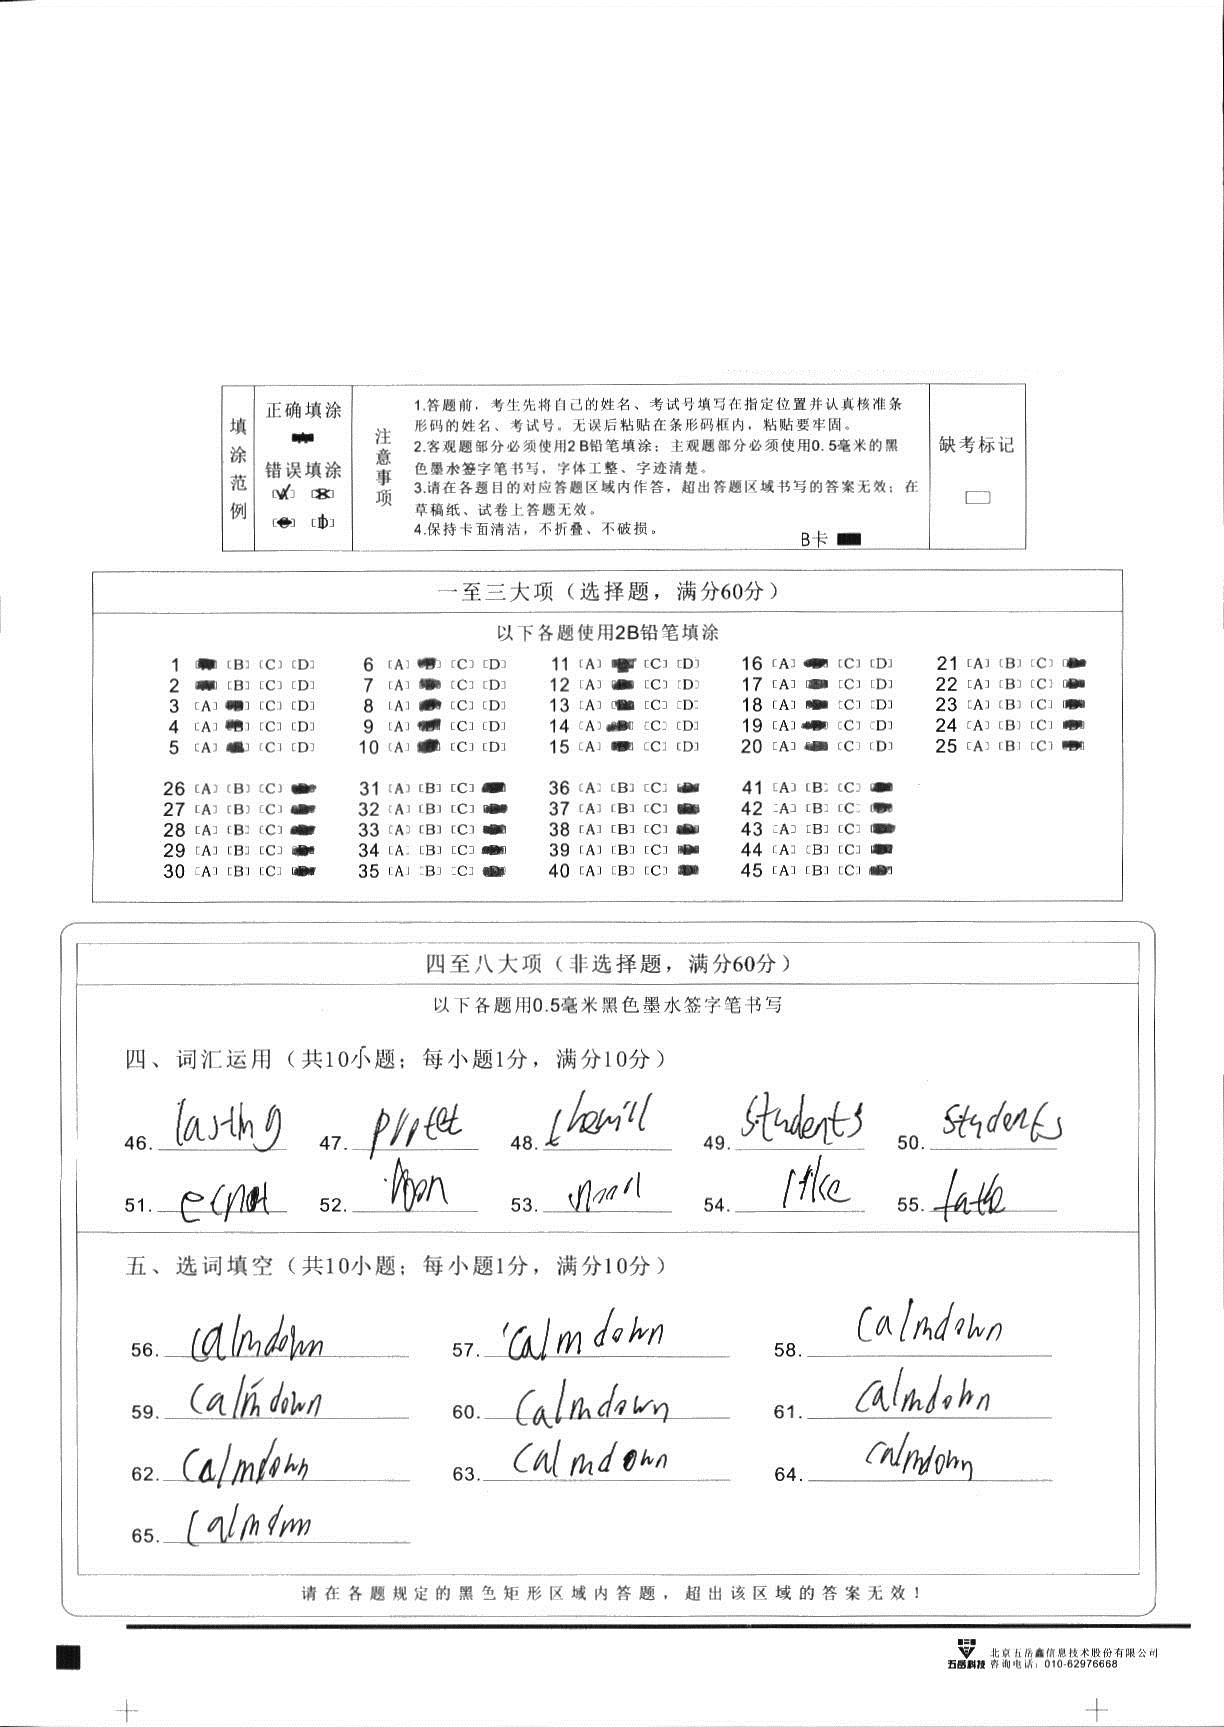 填涂范例
正确填涂
错误填涂
[A] [B]
[C] [D]
注意事项
1.答题前，考生先将自己的姓名、考试号填写在指定位置并认真核准条
形码的姓名、考试号。无误后粘贴在条形码框内，粘贴要牢固。
2.客观题部分必须使用2B铅笔填涂；主观题部分必须使用0.5毫米的黑
色墨水签字笔书写，字体工整、字迹清楚。
3.请在各题目的对应答题区域内作答，超出答题区域书写的答案无效；在
草稿纸、试卷上答题无效。
4.保持卡面清洁，不折叠、不破损。
B卡
缺考标记
一至三大项（选择题，满分60分）
以下各题使用2B铅笔填涂
1 [B] [C] [D] 6 [A] [C] [D] 11 [A] [C] [D] 16 [A] [C] [D] 21 [A] [B] [C]
2 [B] [C] [D] 7 [A] [C] [D] 12 [A] [C] [D] 17 [A] [C] [D] 22 [A] [B] [C]
3 [A] [C] [D] 8 [A] [C] [D] 13 [A] [C] [D] 18 [A] [C] [D] 23 [A] [B] [C]
4 [A] [C] [D] 9 [A] [C] [D] 14 [A] [C] [D] 19 [A] [C] [D] 24 [A] [B] [C]
5 [A] [C] [D] 10 [A] [C] [D] 15 [A] [C] [D] 20 [A] [C] [D] 25 [A] [B] [C]
26 [A] [B] [C] 31 [A] [B] [C] 36 [A] [B] [C] 41 [A] [B] [C]
27 [A] [B] [C] 32 [A] [B] [C] 37 [A] [B] [C] 42 [A] [B] [C]
28 [A] [B] [C] 33 [A] [B] [C] 38 [A] [B] [C] 43 [A] [B] [C]
29 [A] [B] [C] 34 [A] [B] [C] 39 [A] [B] [C] 44 [A] [B] [C]
30 [A] [B] [C] 35 [A] [B] [C] 40 [A] [B] [C] 45 [A] [B] [C]
四至八大项（非选择题，满分60分）
以下各题用0.5毫米黑色墨水签字笔书写
四、词汇运用（共10小题；每小题1分，满分10分）
46. lasting 47. 48. 49. students 50. students
51. 52. 53. 54. like 55.
五、选词填空（共10小题；每小题1分，满分10分）
56. calmdown 57. calmdown 58. calmdown
59. calmdown 60. calmdown 61. calmdown
62. calmdown 63. calmdown 64. calmdown
65. calmdown
请在各题规定的黑色矩形区域内答题，超出该区域的答案无效！
五岳科技 北京五岳鑫信息技术股份有限公司
咨询电话：010-62976668